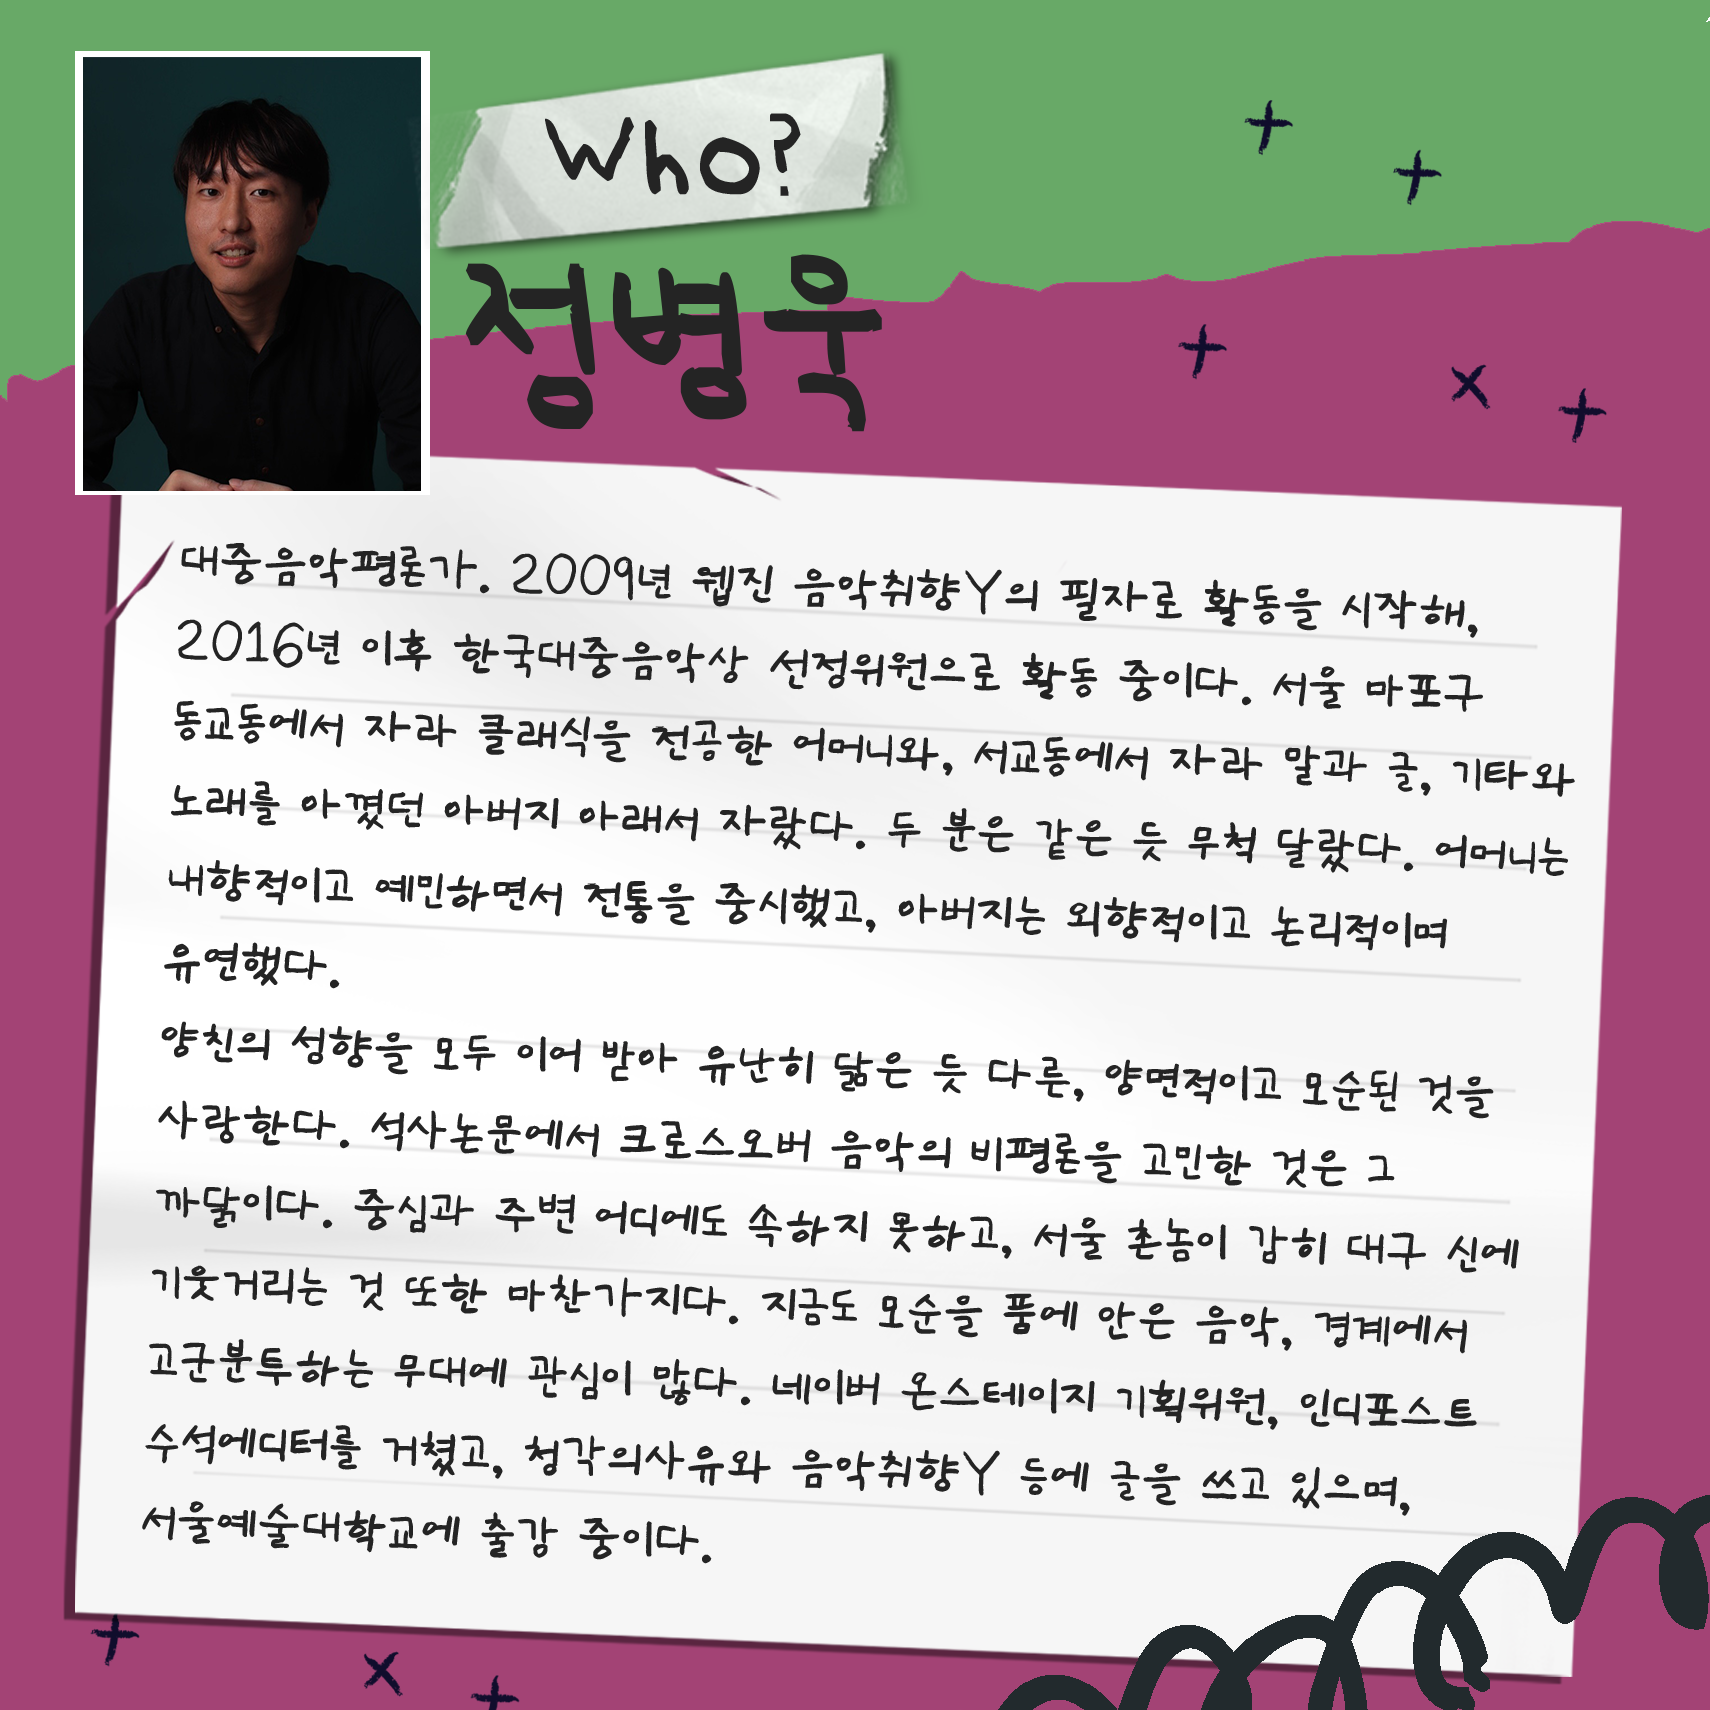 Who?
정병욱
대중음악평론가. 2009년 웹진 음악취향Y의 필자로 활동을 시작해,
2016년 이후 한국대중음악상 선정위원으로 활동 중이다. 서울 마포구
동교동에서 자라 클래식을 전공한 어머니와, 서교동에서 자라 말과 글, 기타와
노래를 아꼈던 아버지 아래서 자랐다. 두 분은 같은 듯 무척 달랐다. 어머니는
내향적이고 예민하면서 전통을 중시했고, 아버지는 외향적이고 논리적이며
유연했다.
양친의 성향을 모두 이어 받아 유난히 닮은 듯 다른, 양면적이고 모순된 것을
사랑한다. 석사논문에서 크로스오버 음악의 비평론을 고민한 것은 그
까닭이다. 중심과 주변 어디에도 속하지 못하고, 서울 촌놈이 감히 대구 신에
기웃거리는 것 또한 마찬가지다. 지금도 모순을 품에 안은 음악, 경계에서
고군분투하는 무대에 관심이 많다. 네이버 온스테이지 기획위원, 인디포스트
수석에디터를 거쳤고, 청각의사유와 음악취향Y 등에 글을 쓰고 있으며,
서울예술대학교에 출강 중이다.